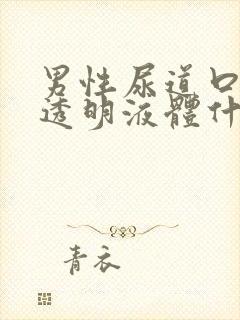 男性尿道口
透明液體什
青衣